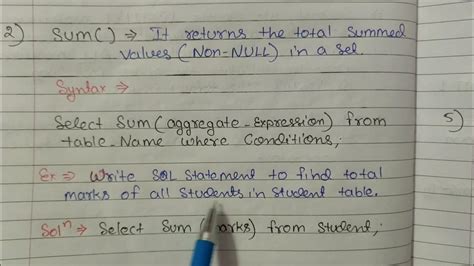 2) Sum() ⇒ It returns the total summed
values (Non-NULL) in a set.
Syntax ⇒
Select Sum(aggregate-Expression) from
table-Name where Conditions;
5)
Ex ⇒ Write SQL Statement to find total
marks of all Students in Student table.
Solⁿ ⇒ Select Sum(Marks) from Student;